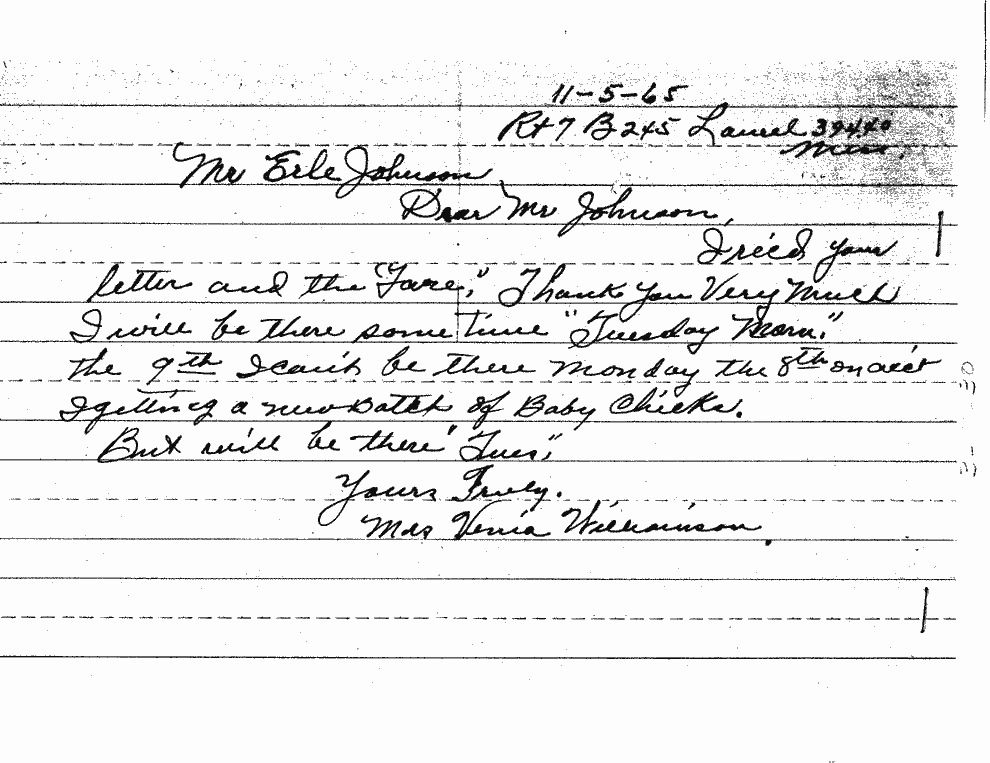 11-5-65
Rt 7 B 245 Laurel 39440
Miss.
Mr Erle Johnson
Dear Mr Johnson,
I rec'd your
letter and the "Fare," Thank you Very Much
I will be there some time "Tuesday Morn."
the 9th I can't be there Monday the 8th on acct
I getting a new Batch of Baby Chicks.
But will be there "Tues,"
Yours Truly.
Mrs Venia